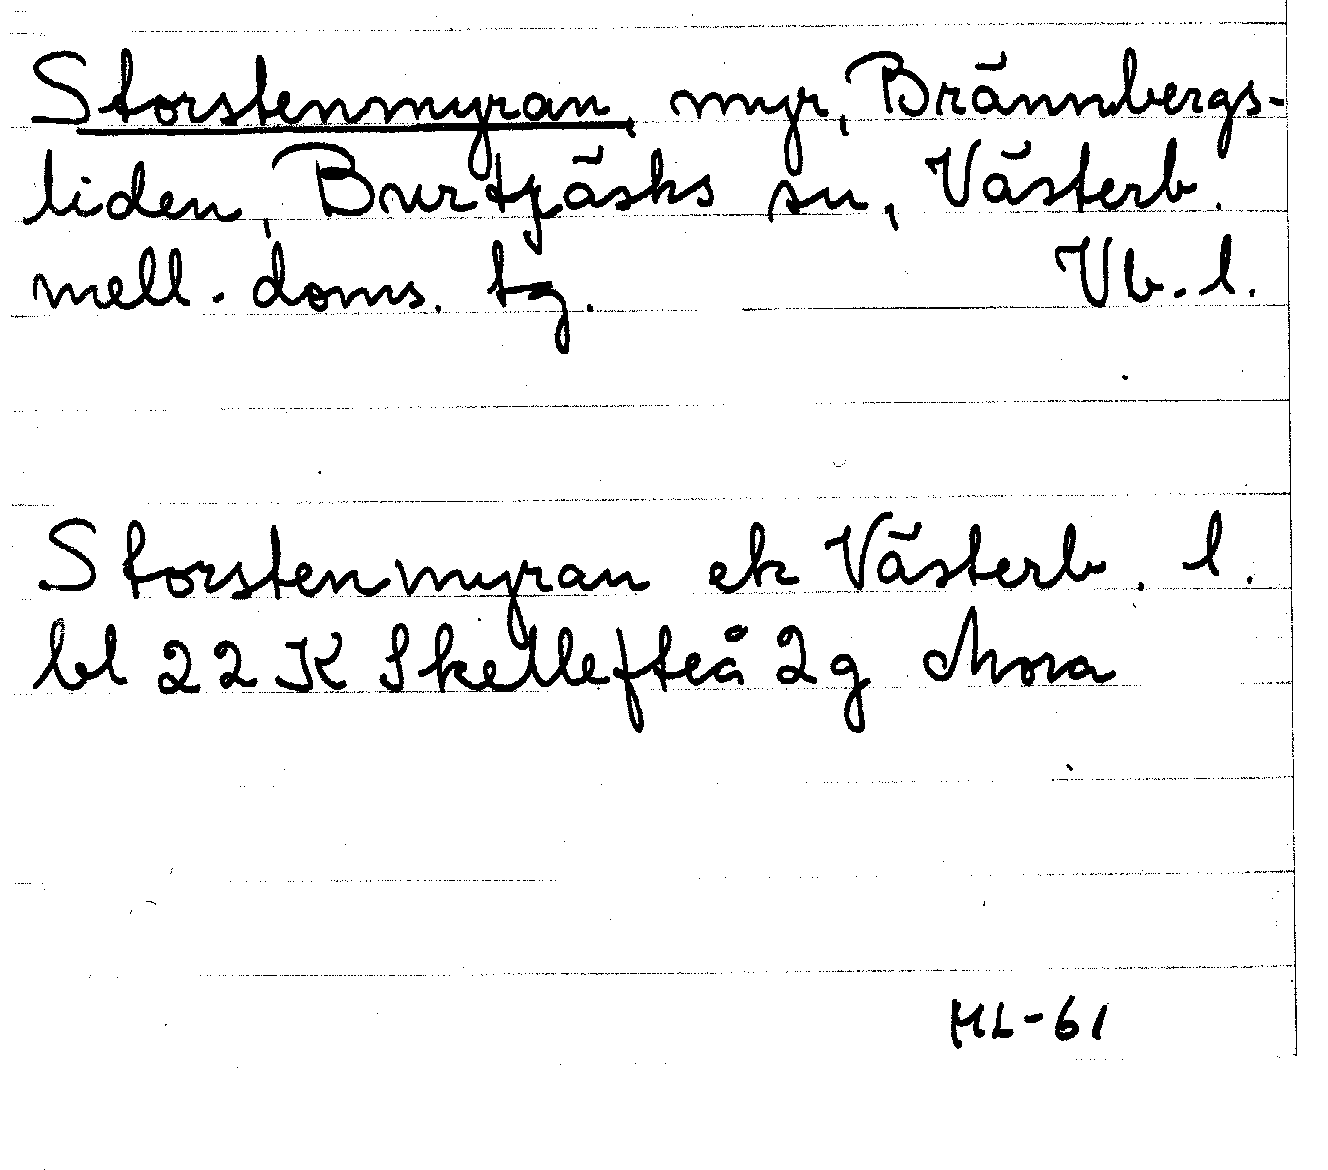 Storstenmyran, myr, Brännbergs-
liden, Burträsks sn, Västerb.
mell. doms. tg. Vb. l.
Storstenmyran ek Västerb. l.
bl 22 K Skellefteå 2g Mora
HL-61